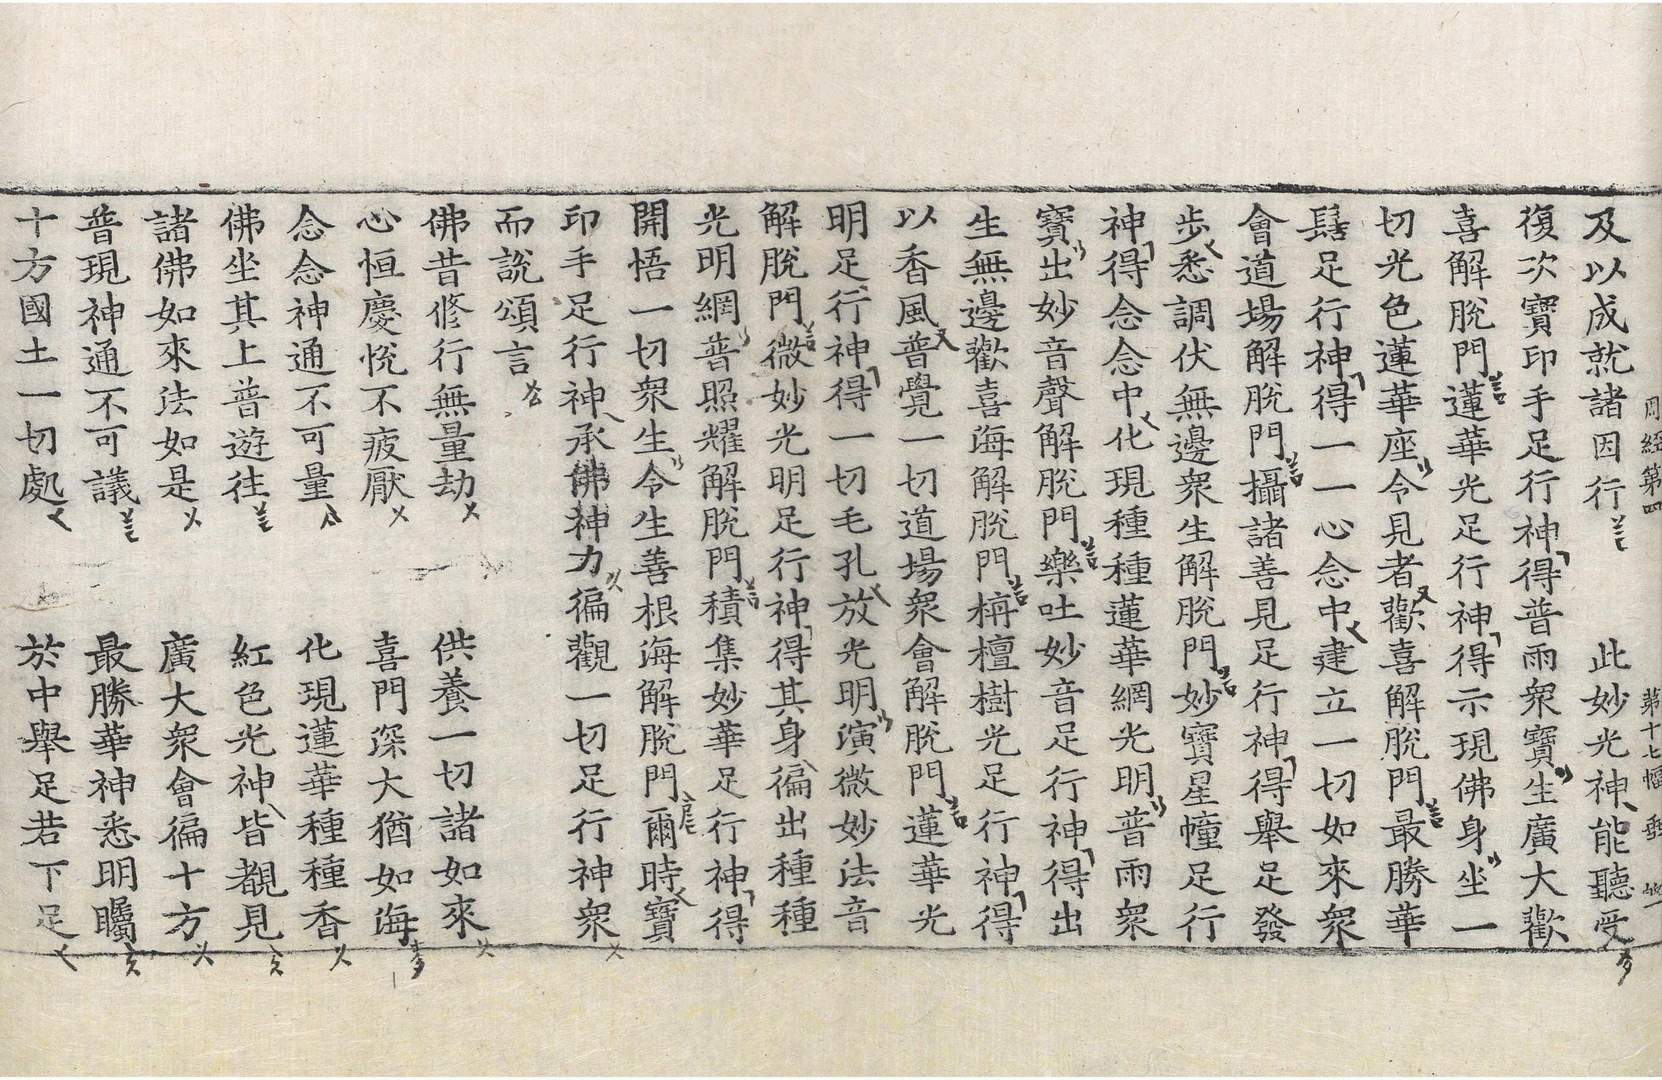 周經第四 第十七幅
及以成就諸因行 此妙光神能聽受
復次寶印手足行神得普雨衆寶生廣大歡
喜解脫門蓮華光足行神得示現佛身坐一
切光色蓮華座令見者歡喜解脫門最勝華
髻足行神得一一心念中建立一切如來衆
會道場解脫門攝諸善見足行神得舉足發
步悉調伏無邊衆生解脫門妙寶星幢足行
神得念念中化現種種蓮華網光明普雨衆
寶出妙音聲解脫門樂吐妙音足行神得出
生無邊歡喜海解脫門栴檀樹光足行神得
以香風普覺一切道場衆會解脫門蓮華光
明足行神得一切毛孔放光明演微妙法音
解脫門微妙光明足行神得其身徧出種種
光明網普照耀解脫門積集妙華足行神得
開悟一切衆生令生善根海解脫門爾時寶
印手足行神承佛神力徧觀一切足行神衆
而說頌言
佛昔修行無量劫 供養一切諸如來
心恒慶悅不疲厭 喜門深大猶如海
念念神通不可量 化現蓮華種種香
佛坐其上普遊往 紅色光神皆覩見
諸佛如來法如是 廣大衆會徧十方
普現神通不可議 最勝華神悉明矚
十方國土一切處 於中舉足若下足